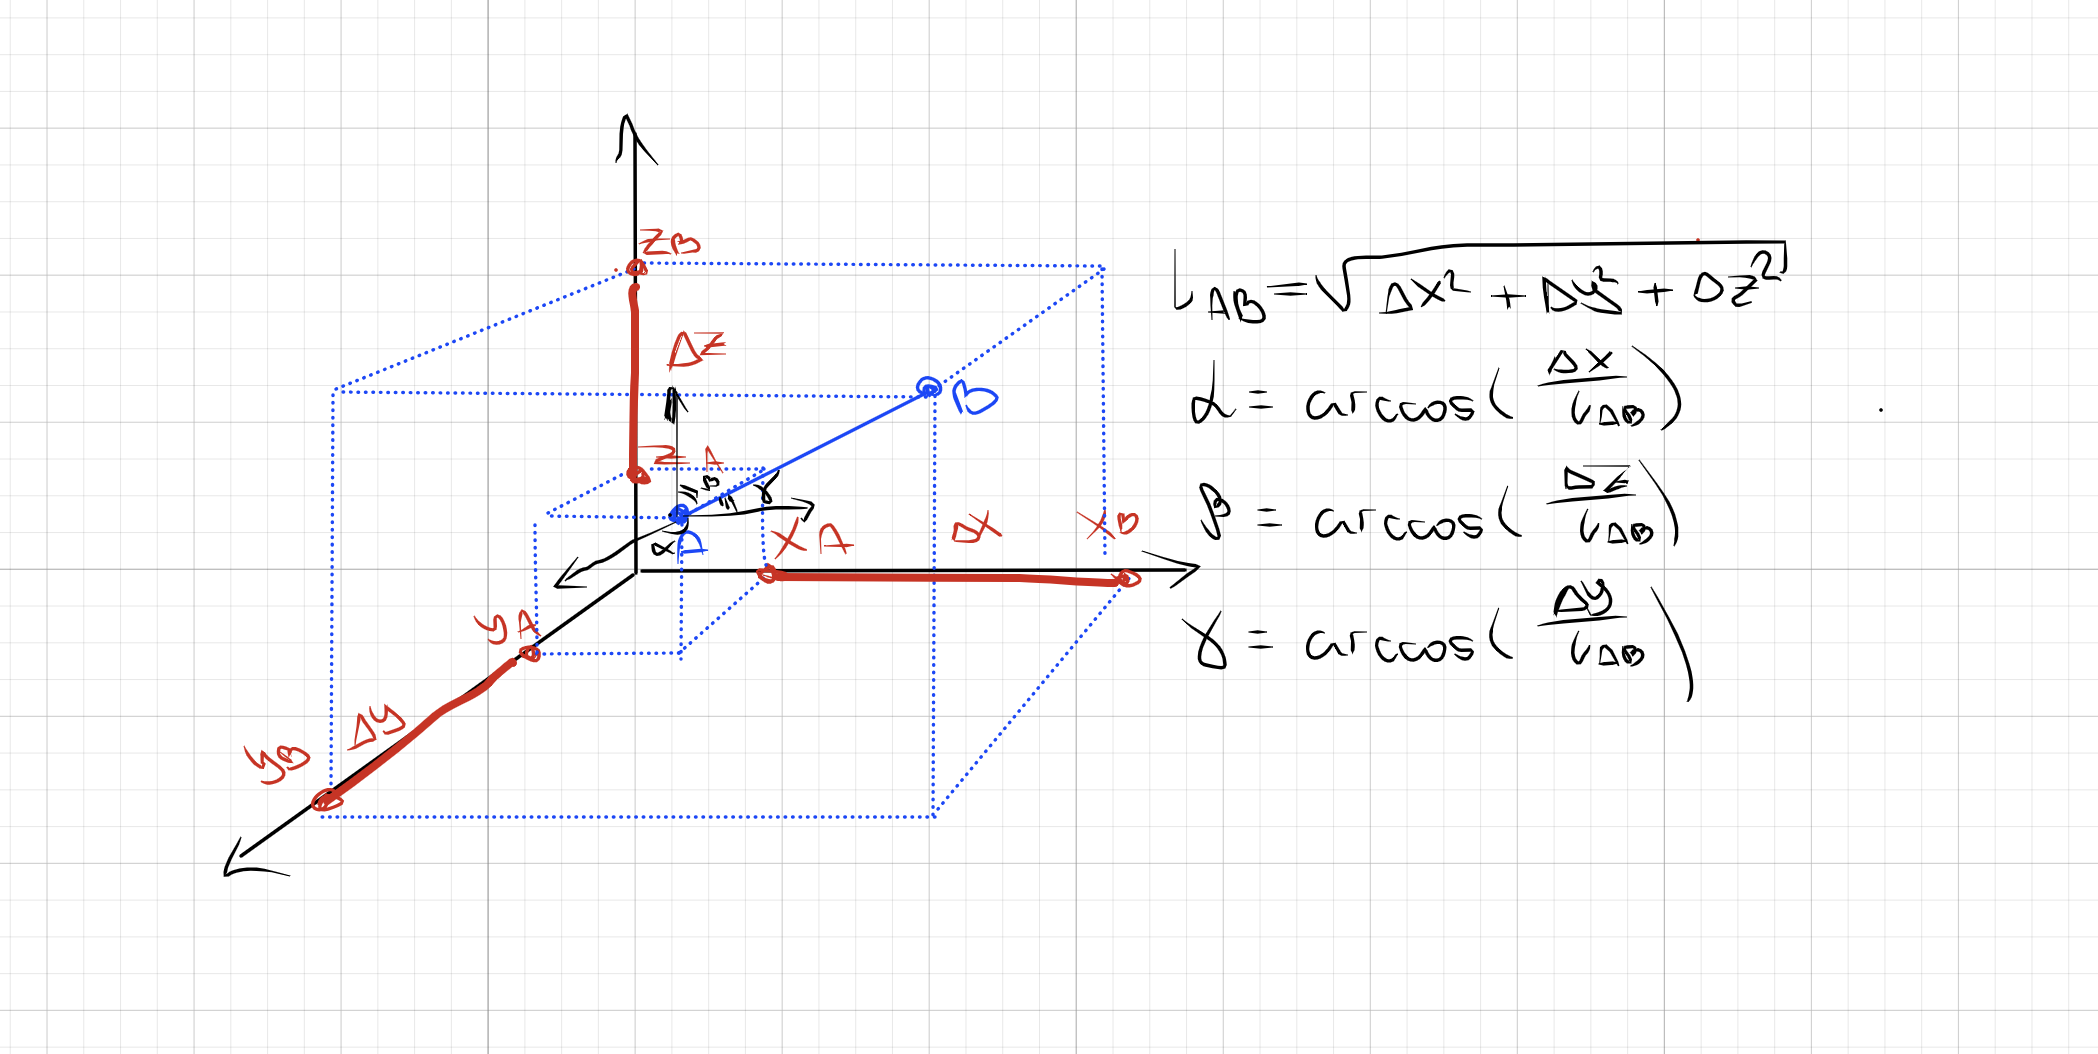 ZB
ΔZ
ZA
B
β
γ
α
A
XA
ΔX
XB
yA
Δy
yB
L_AB = √(ΔX² + Δy² + ΔZ²)
α = arccos(ΔX / L_AB)
β = arccos(ΔZ / L_AB)
γ = arccos(Δy / L_AB)